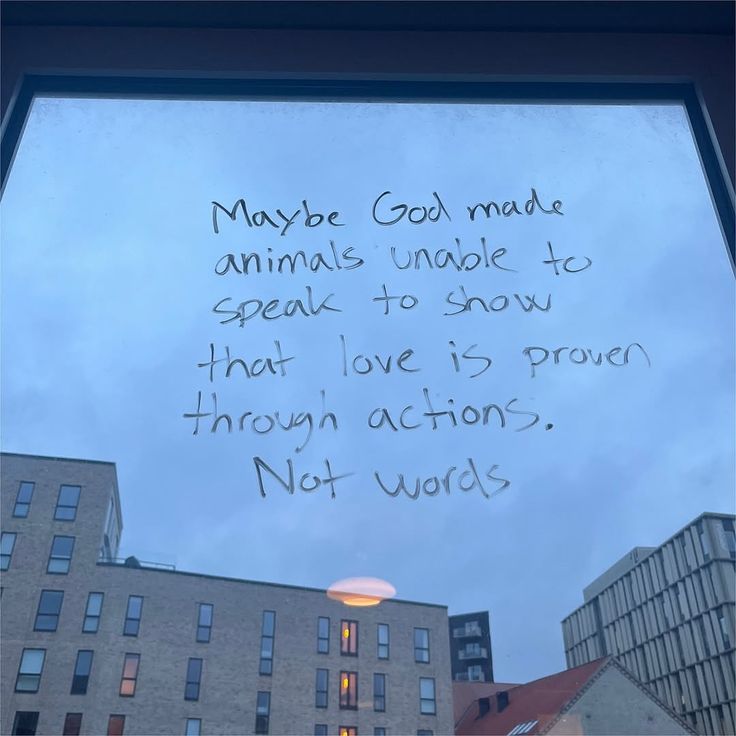 Maybe God made
animals unable to
speak to show
that love is proven
through actions.
Not words